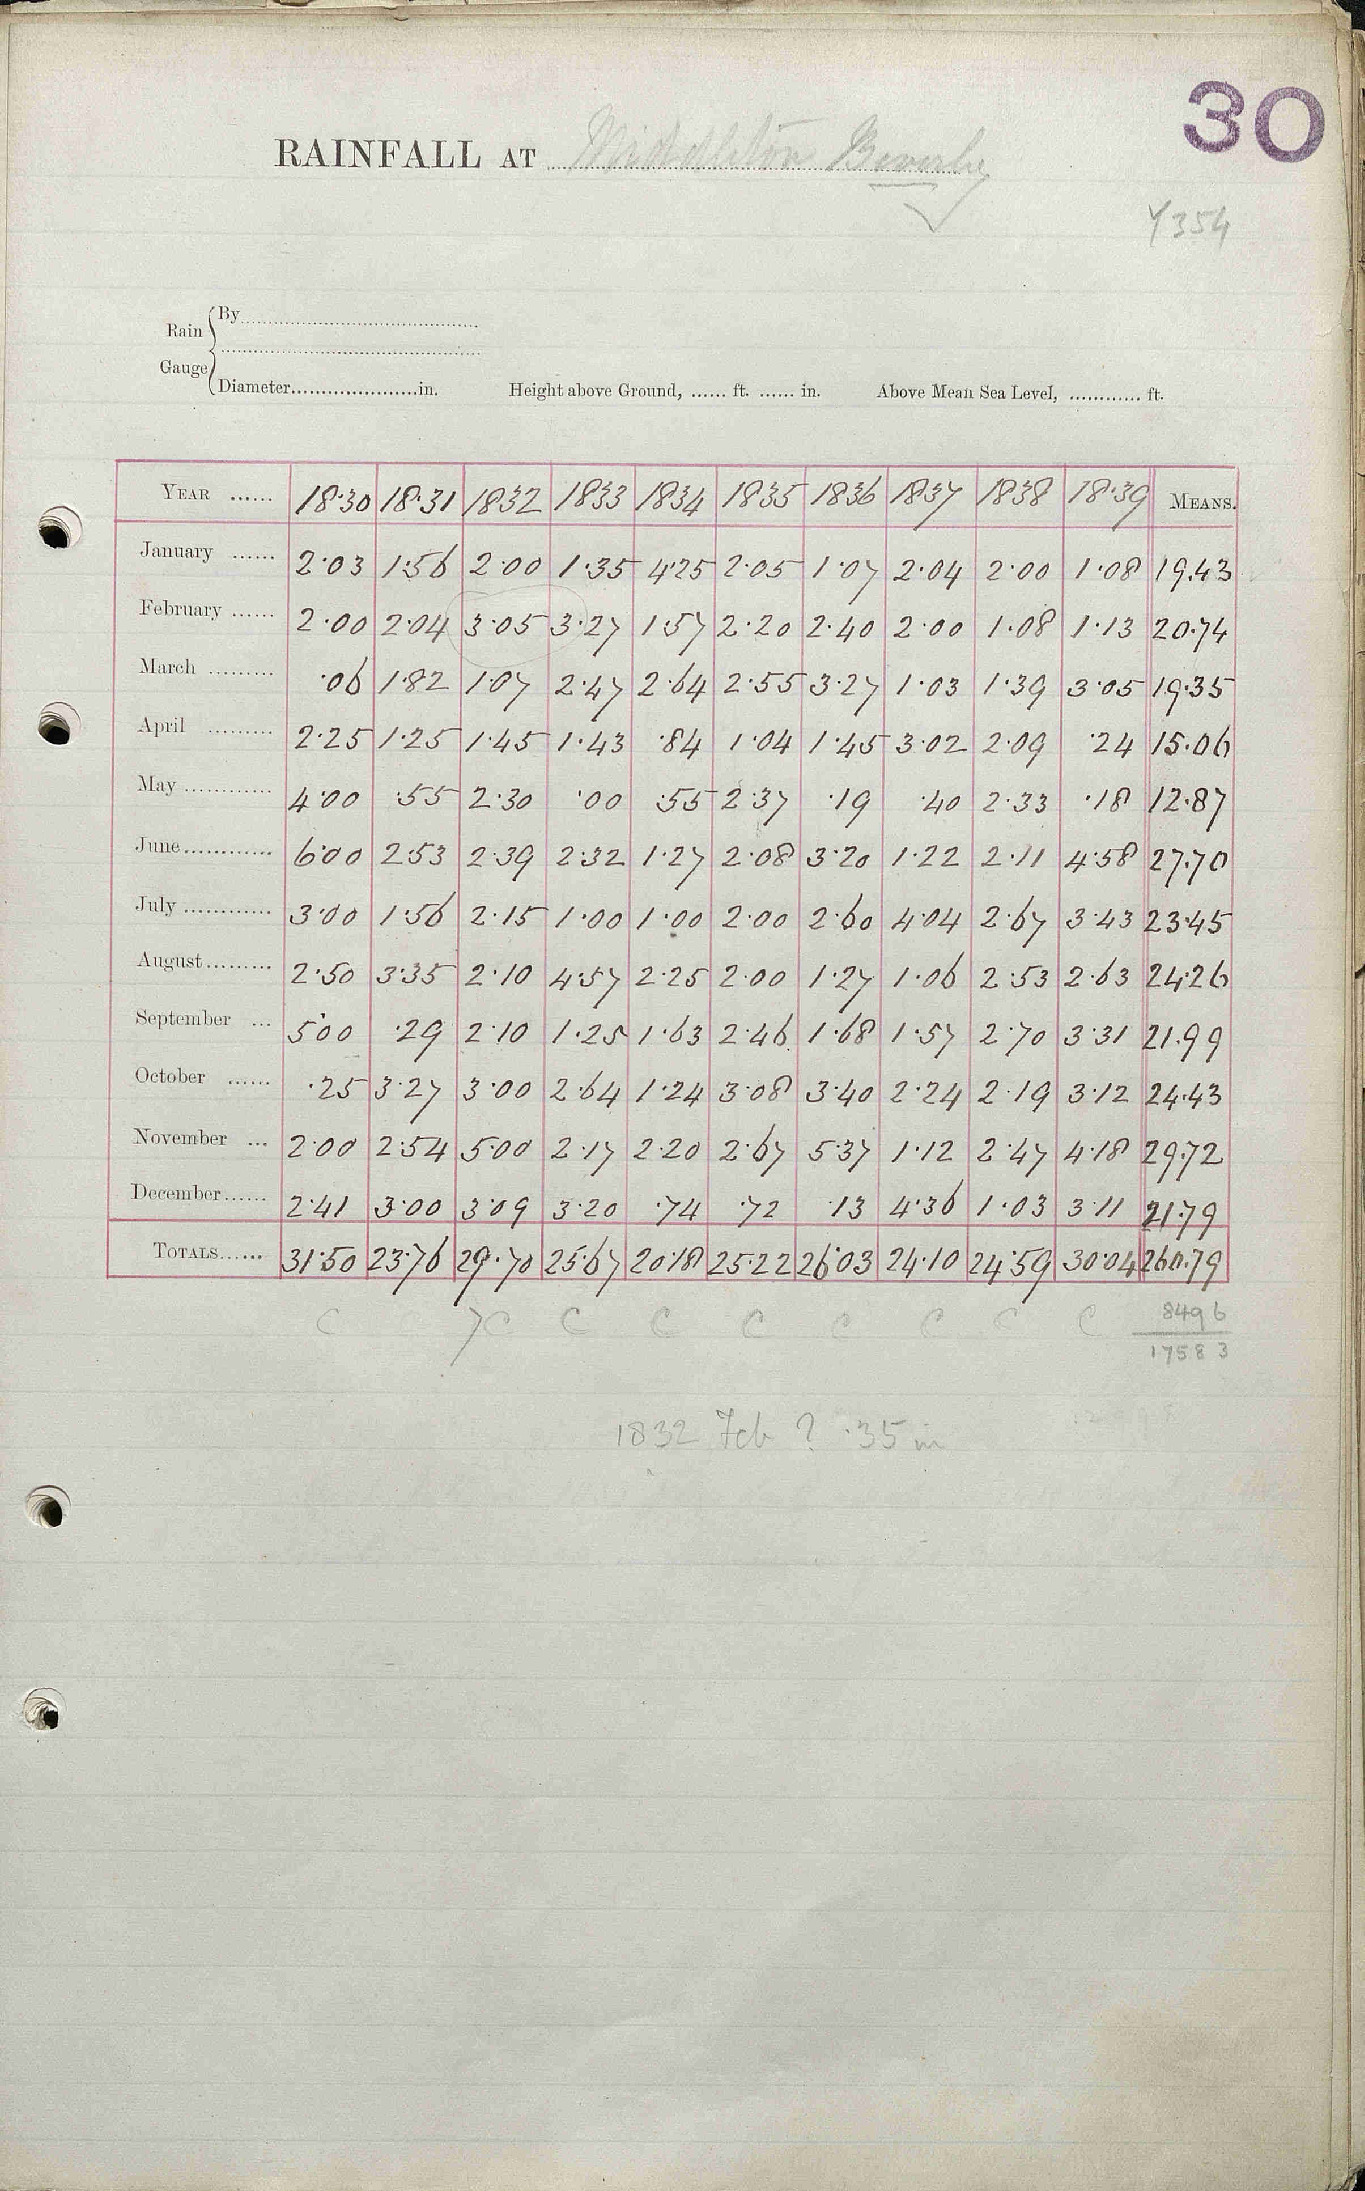 30
RAINFALL AT Middleton Beverley
Y354
Rain Gauge { By
Diameter in. Height above Ground, ft. in. Above Mean Sea Level, ft.
YEAR 18·30 18·31 1832 1833 1834 1835 1836 1837 1838 18·39 MEANS.
January 2·03 1·56 2·00 1·35 4·25 2·05 1·07 2·04 2·00 1·08 19.43
February 2·00 2·04 3·05 3·27 1·57 2·20 2·40 2·00 1·08 1·13 20·74
March ·06 1·82 1·07 2·47 2·64 2·55 3·27 1·03 1·39 3·05 19·35
April 2·25 1·25 1·45 1·43 ·84 1·04 1·45 3·02 2·09 ·24 15·06
May 4·00 ·55 2·30 ·00 ·55 2·37 ·19 ·40 2·33 ·18 12·87
June 6·00 2·53 2·39 2·32 1·27 2·08 3·20 1·22 2·11 4·58 27·70
July 3·00 1·56 2·15 1·00 1·00 2·00 2·60 4·04 2·67 3·43 23·45
August 2·50 3·35 2·10 4·57 2·25 2·00 1·27 1·06 2·53 2·63 24·26
September 5·00 ·29 2·10 1·25 1·63 2·46 1·68 1·57 2·70 3·31 21.99
October ·25 3·27 3·00 2·64 1·24 3·08 3·40 2·24 2·19 3·12 24·43
November 2·00 2·54 5·00 2·17 2·20 2·67 5·37 1·12 2·47 4·18 29·72
December 2·41 3·00 3·09 3·20 ·74 ·72 ·13 4·36 1·03 3·11 21·79
TOTALS 31·50 23·76 29·70 25·67 20·18 25·22 26·03 24·10 24·59 30·04 260.79
C C C C C C C C C 8496
17583
1832 Feb ? ·35 in